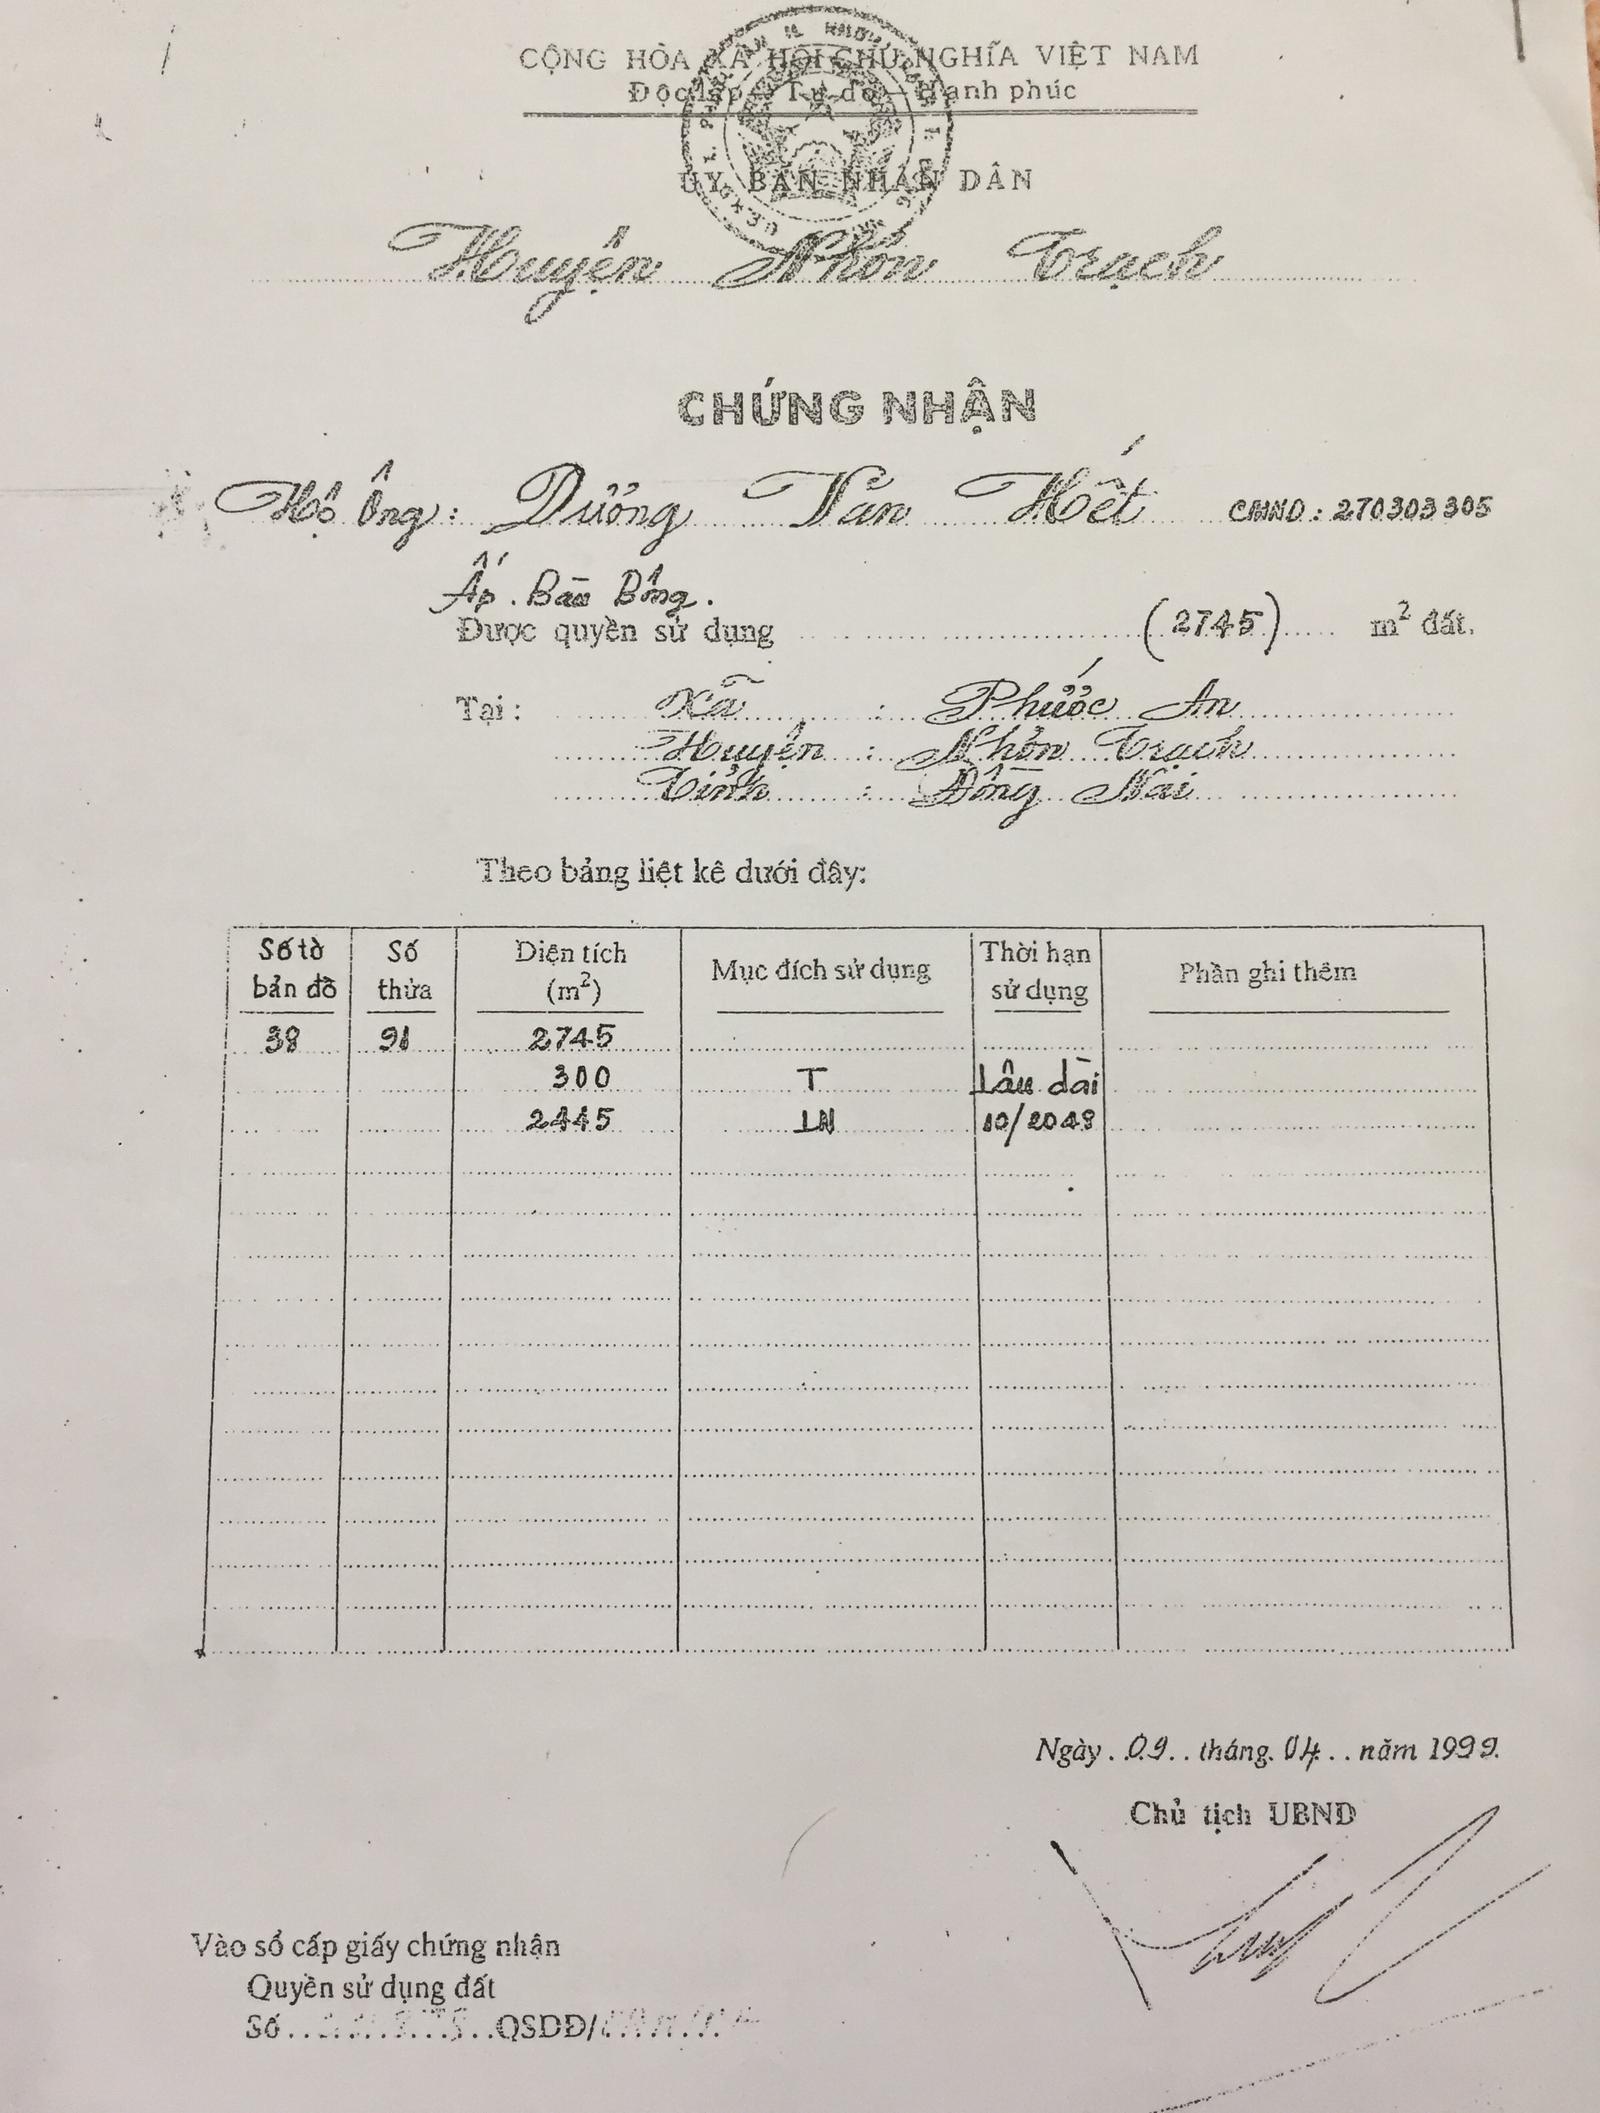 CỘNG HÒA XÃ HỘI CHỦ NGHĨA VIỆT NAM
Độc lập - Tự do - Hạnh phúc
ỦY BAN NHÂN DÂN
Huyện Nhơn Trạch
CHỨNG NHẬN
Hộ Ông: Dương Văn Hết CMND: 270303305
Ấp. Bàu Bông.
Được quyền sử dụng (2745) m² đất.
Tại: Xã : Phước An
Huyện : Nhơn Trạch
Tỉnh : Đồng Nai
Theo bảng liệt kê dưới đây:
Số tờ bản đồ Số thửa Diện tích (m²) Mục đích sử dụng Thời hạn sử dụng Phần ghi thêm
38 91 2745
300 T Lâu dài
2445 LN 10/2048
Ngày 09 tháng 04 năm 1999.
Chủ tịch UBND
Vào sổ cấp giấy chứng nhận
Quyền sử dụng đất
Số QSDĐ/